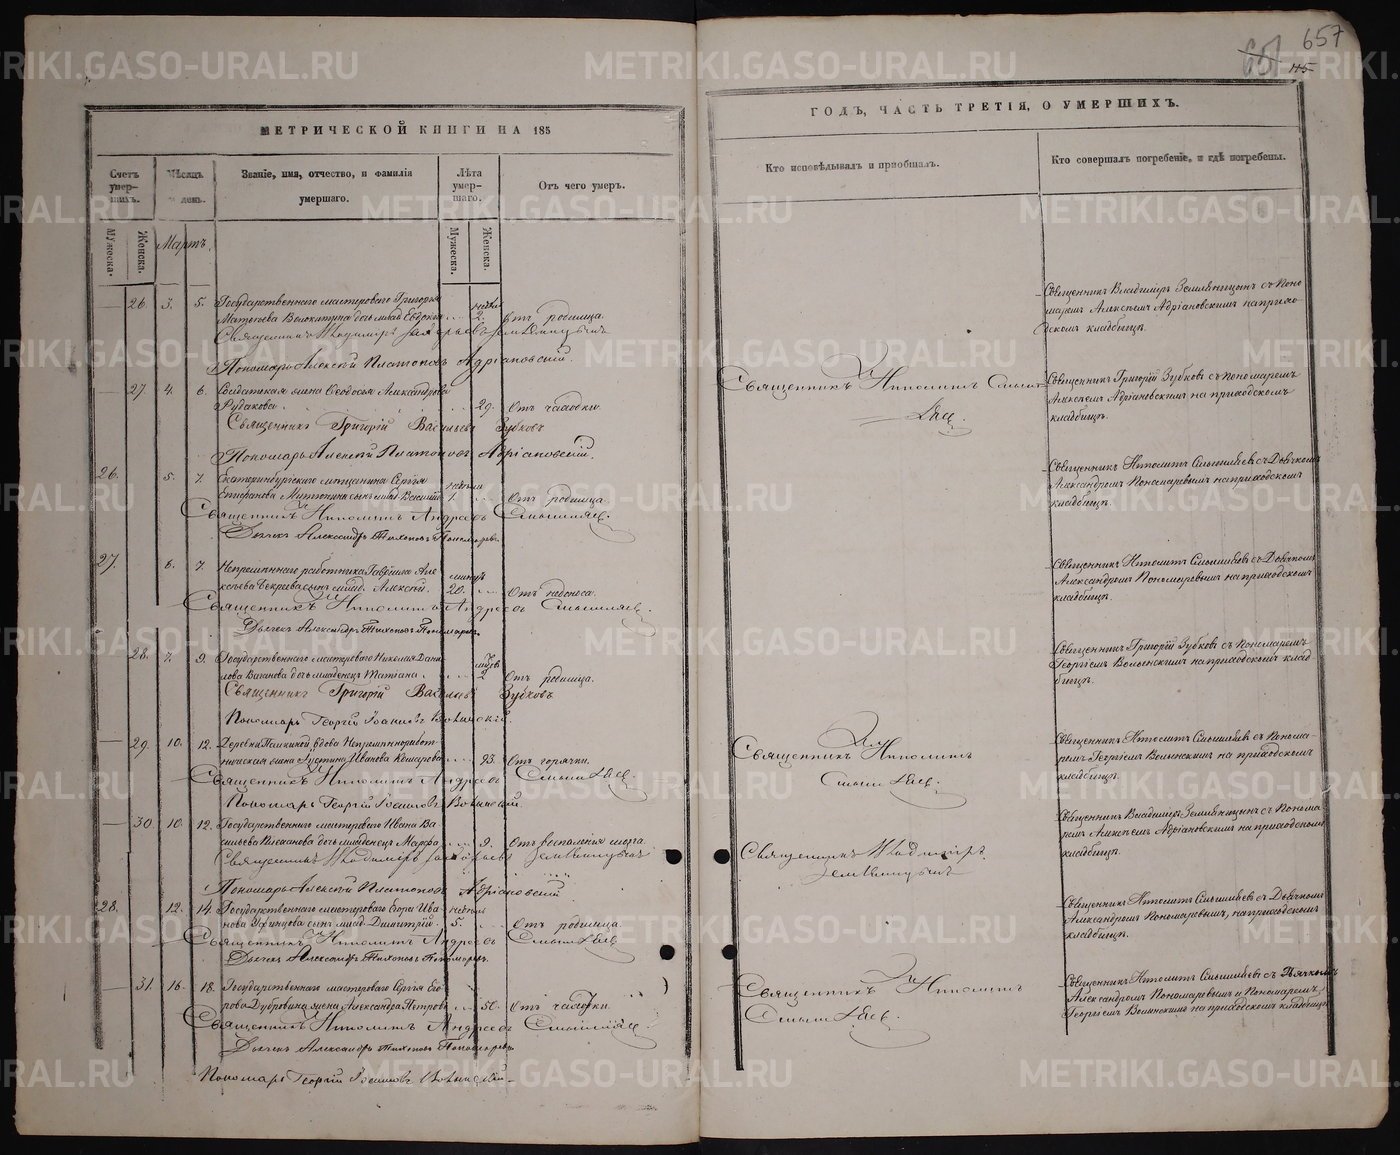 657
115
МЕТРИЧЕСКОЙ КНИГИ НА 185
ГОДЪ, ЧАСТЬ ТРЕТІЯ, О УМЕРШИХЪ.
Счетъ умерших.
Мѣсяцъ и день.
Званіе, имя, отчество, и фамилія умершаго.
Лѣта умершаго.
Отъ чего умеръ.
Кто исповѣдывалъ и пріобщалъ.
Кто совершалъ погребеніе, и гдѣ погребены.
Мужеска.
Женска.
Мартъ.
Мужеска.
Женска.
26. 3. 5. Государственнаго мастероваго Григорья
дочь млад. Евдокія 2. Отъ родимца.
Священникъ Владиміръ Земляницынъ
Пономарь Алексѣй Платоновъ Адріановскій.
Священникъ Владиміръ Земляницынъ съ Поно
маремъ Алексѣемъ Адріановскимъ на прихо
дскомъ кладбищѣ.
27. 4. 6. Солдатская жена Ѳеодосья Александрова
Рудакова. 29. Отъ чахотки.
Священникъ Григорій Васильевъ Зубковъ
Пономарь Алексѣй Платоновъ Адріановскій.
Священникъ Ипполитъ Смышляевъ
Священникъ Григорій Зубковъ съ Пономаремъ
Алексѣемъ Адріановскимъ на приходскомъ
кладбищѣ.
26. 5. 7. Екатеринбургскаго мѣщанина Сергѣя
сынъ млад. Василій 1. Отъ родимца.
Священникъ Ипполитъ Андреевъ Смышляевъ.
Дьячекъ Александръ Тихоновъ Пономаревъ.
Священникъ Ипполитъ Смышляевъ съ Дьячкомъ
Александромъ Пономаревымъ на приходскомъ
кладбищѣ.
27. 6. 7. Непремѣннаго работника Гавріила Але
ксѣева сынъ млад. Алексѣй. минутъ 20. Отъ недоноса.
Священникъ Ипполитъ Андреевъ Смышляевъ.
Дьячекъ Александръ Тихоновъ Пономаревъ.
Священникъ Ипполитъ Смышляевъ съ Дьячкомъ
Александромъ Пономаревымъ на приходскомъ
кладбищѣ.
28. 7. 9. Государственнаго мастероваго Николая Дани
лова Ваганова дочь младенецъ Татіана. 2 Отъ родимца.
Священникъ Григорій Васильевъ Зубковъ
Пономарь Георгій Іоанновъ Волынскій.
Священникъ Григорій Зубковъ съ Пономаремъ
Георгіемъ Волынскимъ на приходскомъ клад
бищѣ.
29. 10. 12. Деревни вдова Непремѣнноработ
ническая жена Іустина Иванова 93. Отъ горячки.
Священникъ Ипполитъ Андреевъ Смышляевъ.
Пономарь Георгій Іоанновъ Волынскій.
Священникъ Ипполитъ
Смышляевъ.
Священникъ Ипполитъ Смышляевъ съ Понома-
ремъ Георгіемъ Волынскимъ на приходскомъ
кладбищѣ.
30. 10. 12. Государственнаго мастероваго Ивана Ва
сильева дочь младенецъ Марфа 9. Отъ воспаленія горла.
Священникъ Владиміръ Земляницынъ
Пономарь Алексѣй Платоновъ Адріановскій
Священникъ Владиміръ
Земляницынъ
Священникъ Владиміръ Земляницынъ съ Понома
ремъ Алексѣемъ Адріановскимъ на приходскомъ
кладбищѣ.
28. 12. 14. Государственнаго мастероваго Егора Ива
нова сынъ млад. Димитрій. 5. Отъ родимца.
Священникъ Ипполитъ Андреевъ Смышляевъ
Дьячекъ Александръ Тихоновъ Пономаревъ.
Священникъ Ипполитъ Смышляевъ съ Дьячкомъ
Александромъ Пономаревымъ, на приходскомъ
кладбищѣ.
31. 16. 18. Государственнаго мастероваго Сергѣя Его
рова Дубровина жена Александра Петрова 50. Отъ чахотки.
Священникъ Ипполитъ Андреевъ Смышляевъ
Дьячекъ Александръ Тихоновъ Пономаревъ
Пономарь Георгій Іоанновъ Волынскій.
Священникъ Ипполитъ
Смышляевъ.
Священникъ Ипполитъ Смышляевъ съ Дьячкомъ
Александромъ Пономаревымъ и Пономаремъ
Георгіемъ Волынскимъ на приходскомъ кладбищѣ.
METRIKI.GASO-URAL.RU